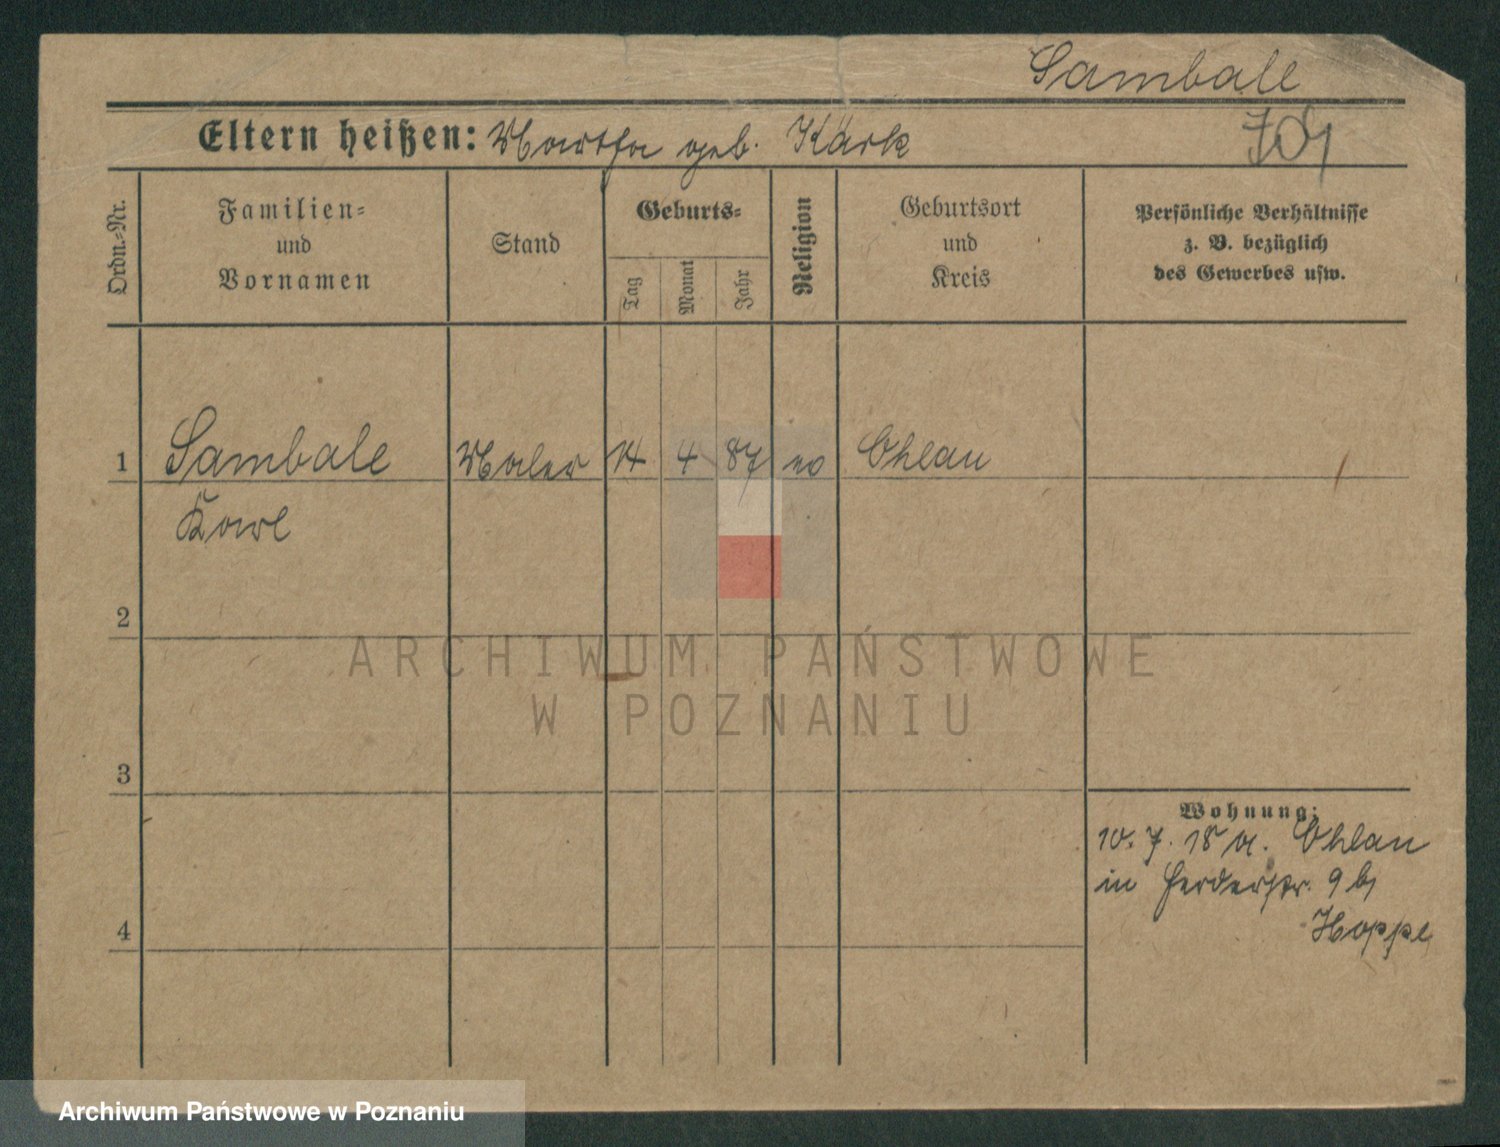 Sambale
Eltern heißen: Martha geb. Kärk
Ordn.=Nr.
Familien=
und
Vornamen
Stand
Geburts=
Tag
Monat
Jahr
Religion
Geburtsort
und
Kreis
Persönliche Verhältnisse
z. B. bezüglich
des Gewerbes usw.
1 Sambale Maler 14 4 87 ev Ohlau
Karl
2
3
4
Wohnung:
10. 7. 18 v. Ohlau
in Herderstr. 9 b/
Hoppe
ARCHIWUM PAŃSTWOWE
W POZNANIU
Archiwum Państwowe w Poznaniu